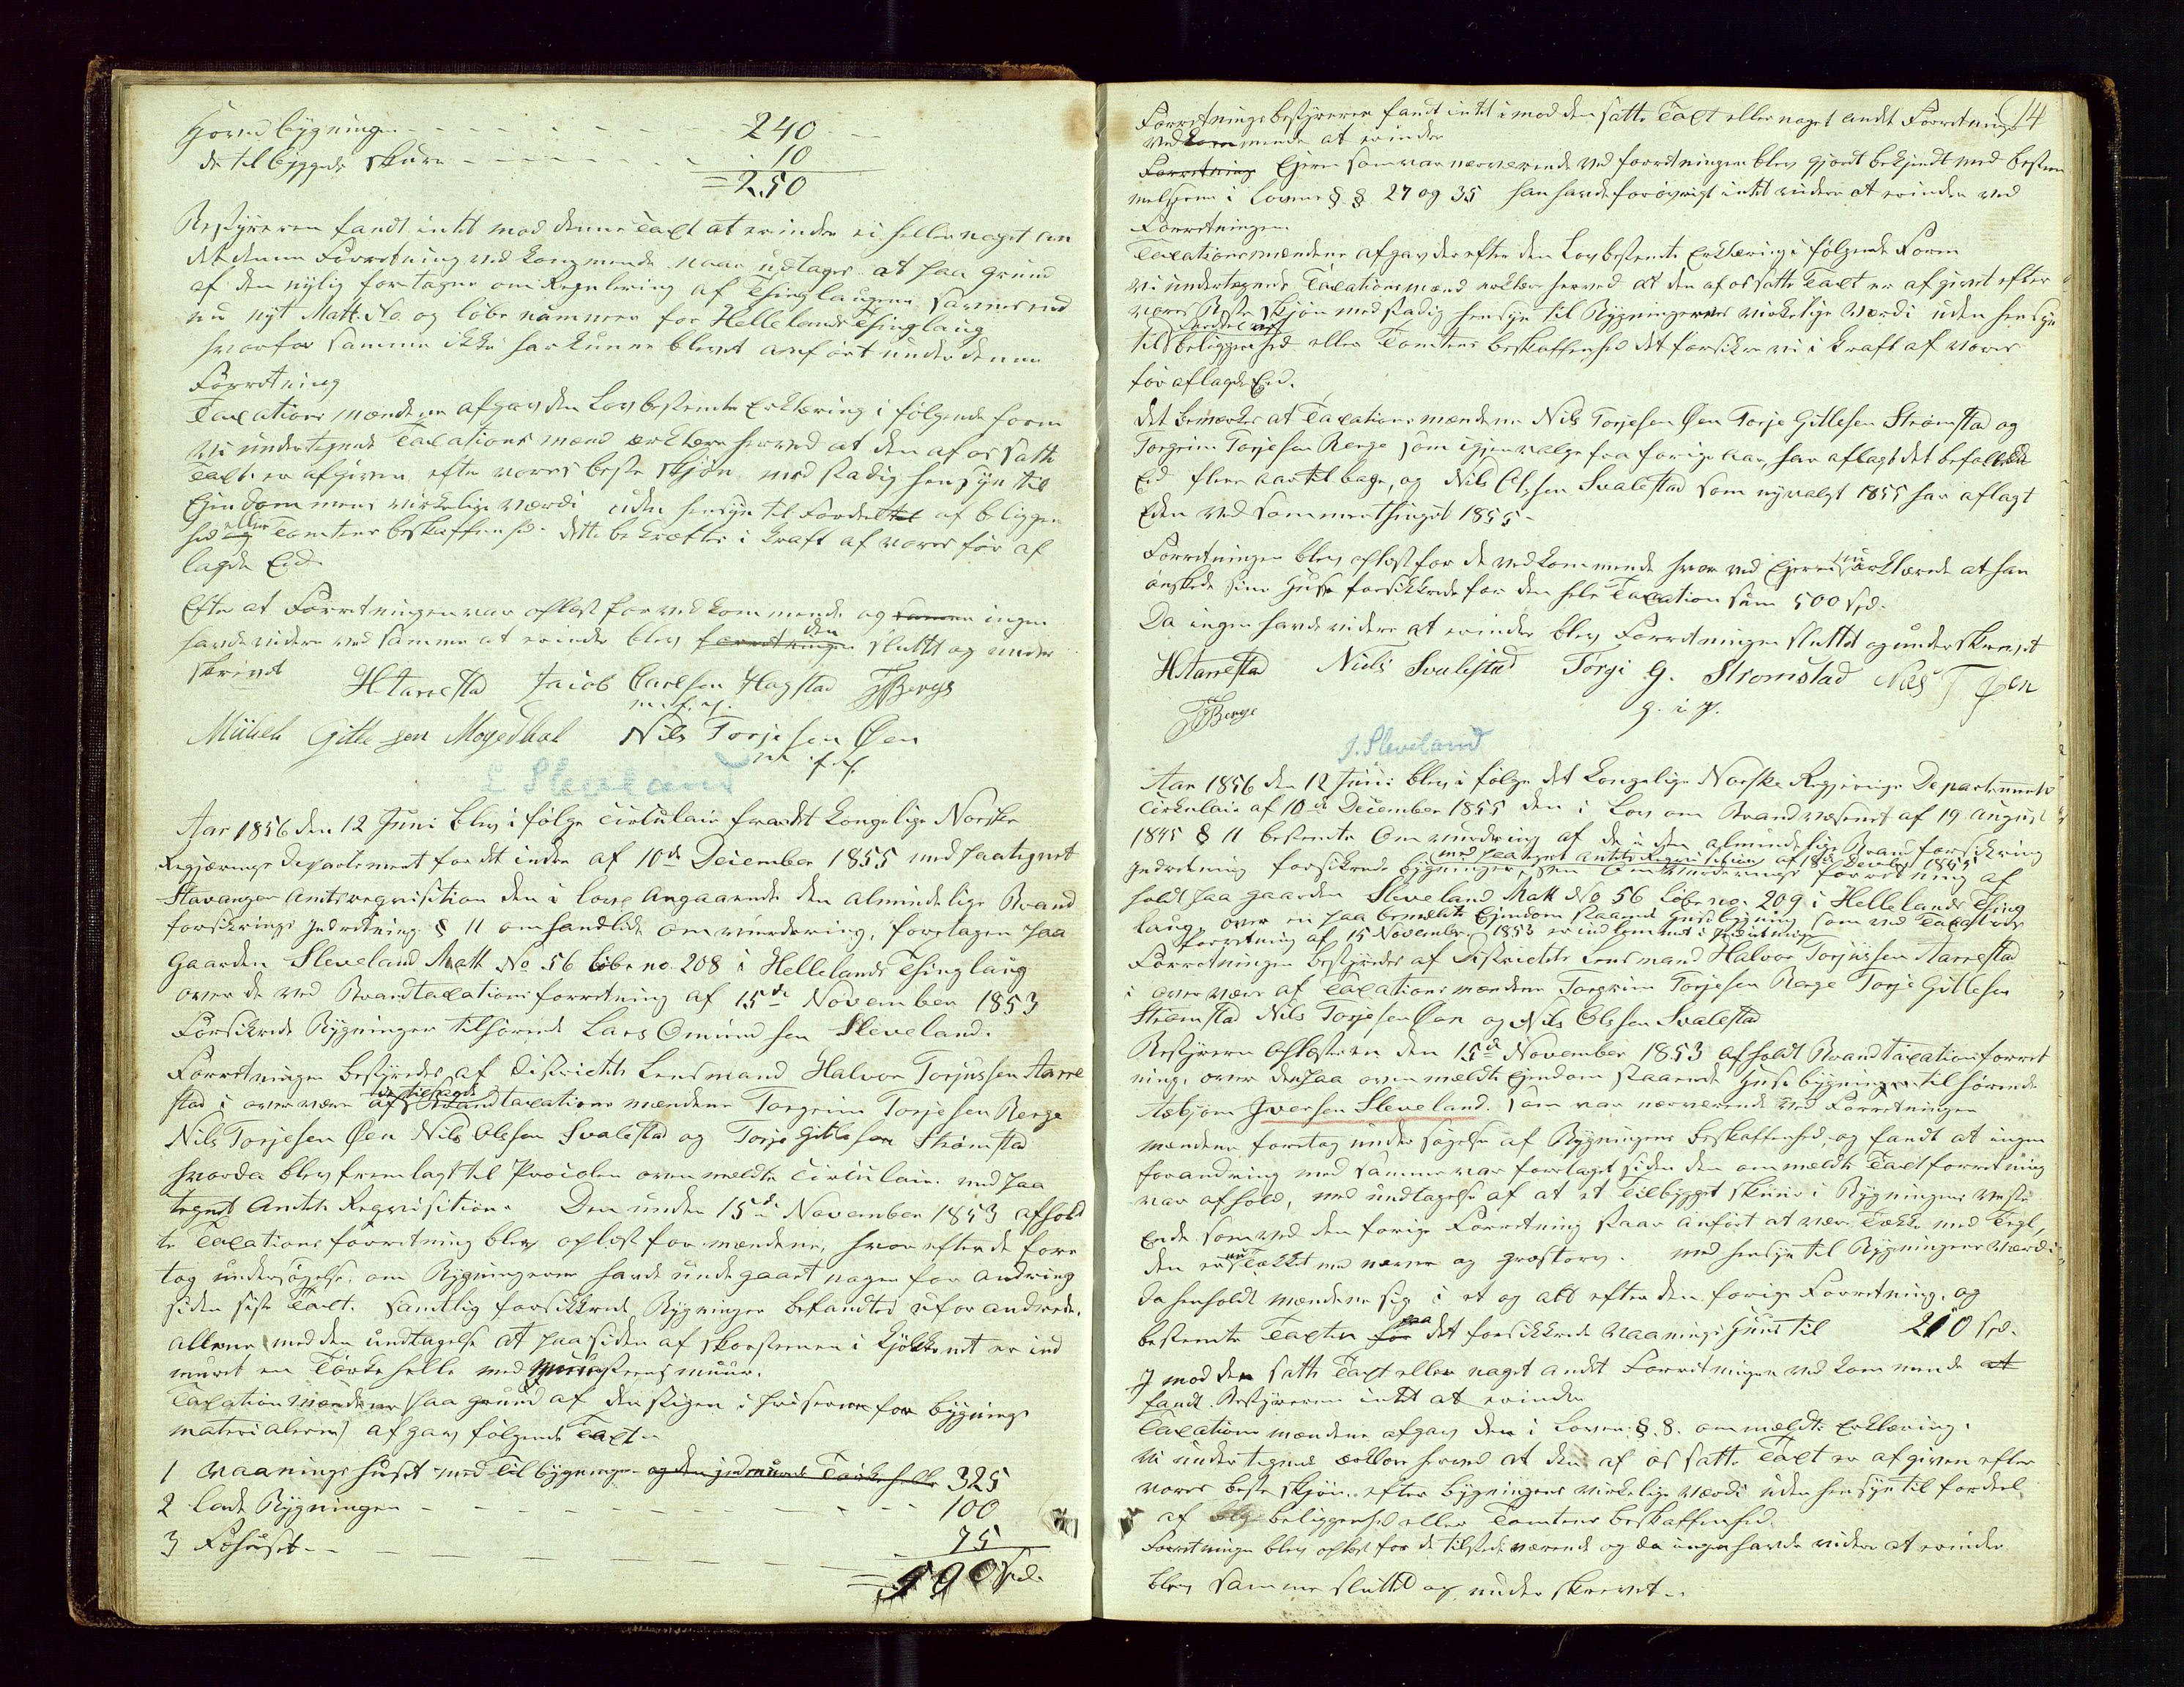 Hovedbygningen - - - - - - - 240
de tilbyggede Skure - - - - - - - 10
= 250
Bestyreren fandt intet mod denne Taxt at erindre ei heller noget an
det denne Forretning vedkommende naar undtages at paa Grund
af den nylig foretagne om Regulering af Thinglaugene savnes end
nu nyt Matt. No. og løbe nummer for Hellelands Thinglaug
hvorfor samme ikke har kunne blevet anført under denne
Forretning
Taxations mændene afgav den Lovbestemte Erklæring i følgende form
Vi undertegnede Taxations mænd erklære herved at den af os satte
Taxt er afgiven efter vores beste skjøn med stadig hensyn til
Ejendommens virkelige værdi uden hensyn til Fordel af beliggen
hed eller Tomtens beskaffenhed. dette bekræftes i kraft af vores før af
lagde Eed.
Efter at Forretningen var oplæst for vedkommende og samme ingen
havde videre ved samme at erindre blev forretningen den sluttet og under
skrevet
HTarrestad Jacob Carlsen Hagstad TTBerge
m. f. p.
Mikkel Gitlesen Mogedhal Nils Torjesen Øen
m. f. p.
L Sleveland
Aar 1856 den 12 Juni blev i følge Cirkulair fra det kongelige Norske
Regjerings Departement for det indre af 10de December 1855 med paategnet
Stavanger Amts requisition den i love angaaende den almindelige Brand
forsikrings Indretning § 11 omhandlede omvurdering, foretagen paa
Gaarden Sleveland Matt No 56 Løbe no. 208 i Hellelands Thinglaug
over de ved Brandtaxations forretning af 15de November 1853
Forsikrede Bygninger tilhørende Lars Omundsen Sleveland.
Forretningen bestyredes af Districtets Lensmand Halvor Torjussen Aarre
stad i overvære af de tilkaldte Brandtaxations mændene Torgrim Torjesen Berge
Nils Torjesen Øen Nils Olssen Svalestad og Torje Gitlesen Strømstad
hvorda blev fremlagt til Protocolen ovenmeldte Cirkulaire med paa
tegnet Amts Requisition. Den under 15de November 1853 afhold
te Taxations forretning blev oplæst for mændene, hvorefter de fore
tog undersøgelse, om Bygningerne havde undergaaet nogen forandring
siden siste Taxt. Samtlig forsikkrede Bygninger befandtes uforandrede,
allene med den undtagelse at paa siden af skorstenen i Kjøkkenet er ind
muret en Tørkehelle med Muurstensmuur.
Taxationsmændene (paa grund af den stigen i Priserne for bygnings
materialerne) afgav følgende Taxt.
1 Vaaningshuset med Tilbygninger og den indmurede Tørkehelle 325
2 Lade Bygningen - - - - - - - 100
3 Fæhuset - - - - - - - 75
= 500 Spd.
14
Forretningsbestyreren fandt intet i mod den satte Taxt eller noget andet Forretningen
vedkommende at erindre
Forretning Ejeren som var nærværende ved forretningen blev gjordt bekjendt med bestem
melserne i Lovens §. §. 27 og 35 han havde forøvrigt intet videre at erindre ved
Forretningen.
Taxationsmændene afgav derefter den Lov bestemte Erklæring i følgende Form
Vi undertegnede Taxationsmænd erklære herved at den af os satte Taxt er afgivet efter
vores Beste skjøn med stadig hensyn til Bygningernes virkelige værdi uden hensyn
til Fordel ved beliggenhed eller Tomtens beskaffenhed det forsikre vi i kraft af vores
før aflagde Eed.
Det bemærkes at Taxationsmændene Nils Torjesen Øen Torje Gitlesen Strømstad og
Torgrim Torjesen Berge som igjenvalgte fra forige aar, har aflagt det befalede
Eed flere aar tilbage, og Nils Olssen Svalestad som nyvalgt 1855 har aflagt
Eden ved Sommerthinget 1855.
Forretningen blev oplæst for de vedkommende hvor ved Ejeren nu erklærede at han
ønskede sine Huse forsikkrede for den hele Taxation sum 500 Spd.
Da ingen havde videre at erindre blev Forretningen sluttet og underskrevet
HTarrestad Niels Svalestad Torje G. Strømstad Nils T Øen
TTBerge g. i p.
J. Sleveland
Aar 1856 den 12 Juni blev i følge det kongelige Norske Regjerings Departements
Cirkulair af 10de December 1855 den i Lov om Brandvæsenet af 19 August
1845 § 11 bestemte Omvurdring af de i den almindelige Brandforsikring
Indretning forsikrede bygninger, med paategnet Amts Requisition af 18de Decembr 1855 en Omvurderings forretning af
holdt paa Gaarden Sleveland Matt No 56 Løbe no. 209 i Hellelands Thing
laug, over en paa bemeldte Ejendom staaende Huusbygning som ved Taxations
forretning af 15 November 1853 er indlemmet i Indretningen
Forretningen bestyredes af Districtets Lensmand Halvor Torjussen Aarrestad
i overvære af Taxationsmændene Torgrim Torjesen Berge Torje Gitlesen
Strømstad Nils Torjesen Øen og Nils Olssen Svalestad
Bestyreren oplæste en den 15de November 1853 afholdt Brandtaxationsforret
ning, over den paa ovenmeldte Ejendom staaende Husebygning tilhørende
Asbjørn Iversen Sleveland. som var nærværende ved Forretningen
mændene foretog undersøgelse af Bygningens beskaffenhed, og fandt at ingen
forandring med samme var foretaget siden den ommeldte Taxtforretning
var afhold, med undtagelse af at et Tilbygget skuur i Bygningens veste
Ende som ved den forige Forretning staar anført at være Tækket med Tegl,
den er nu Tækket med næver og græstorv. med hensyn til Bygningens værdi
da henholdt mændene sig i et og alt efter den forige Forretning, og
bestemte Taxten for paa det forsikkrede Vaanings Huus til 210 Spd.
I mod den satte Taxt eller noget andet Forretningen vedkommende at
fandt Bestyreren intet at erindre
Taxationsmændene afgav den i Loven §. 8. ommeldte Erklæring.
Vi undertegnede erklære herved at den af os satte Taxt er afgiven efter
vores beste skjøn, efter bygningens virkelige værdi uden hensyn til fordeel
af beliggenhed eller Tomtens beskaffenhed.
Forretningen blev oplæst for de tilstedeværende og da ingen havde videre at erindre
blev samme sluttet og underskrevet.